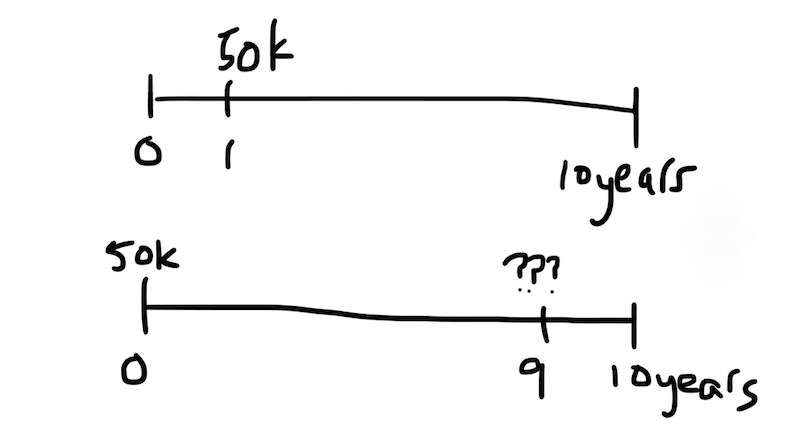 50k
0 1 10years
50k ???
0 9 10years